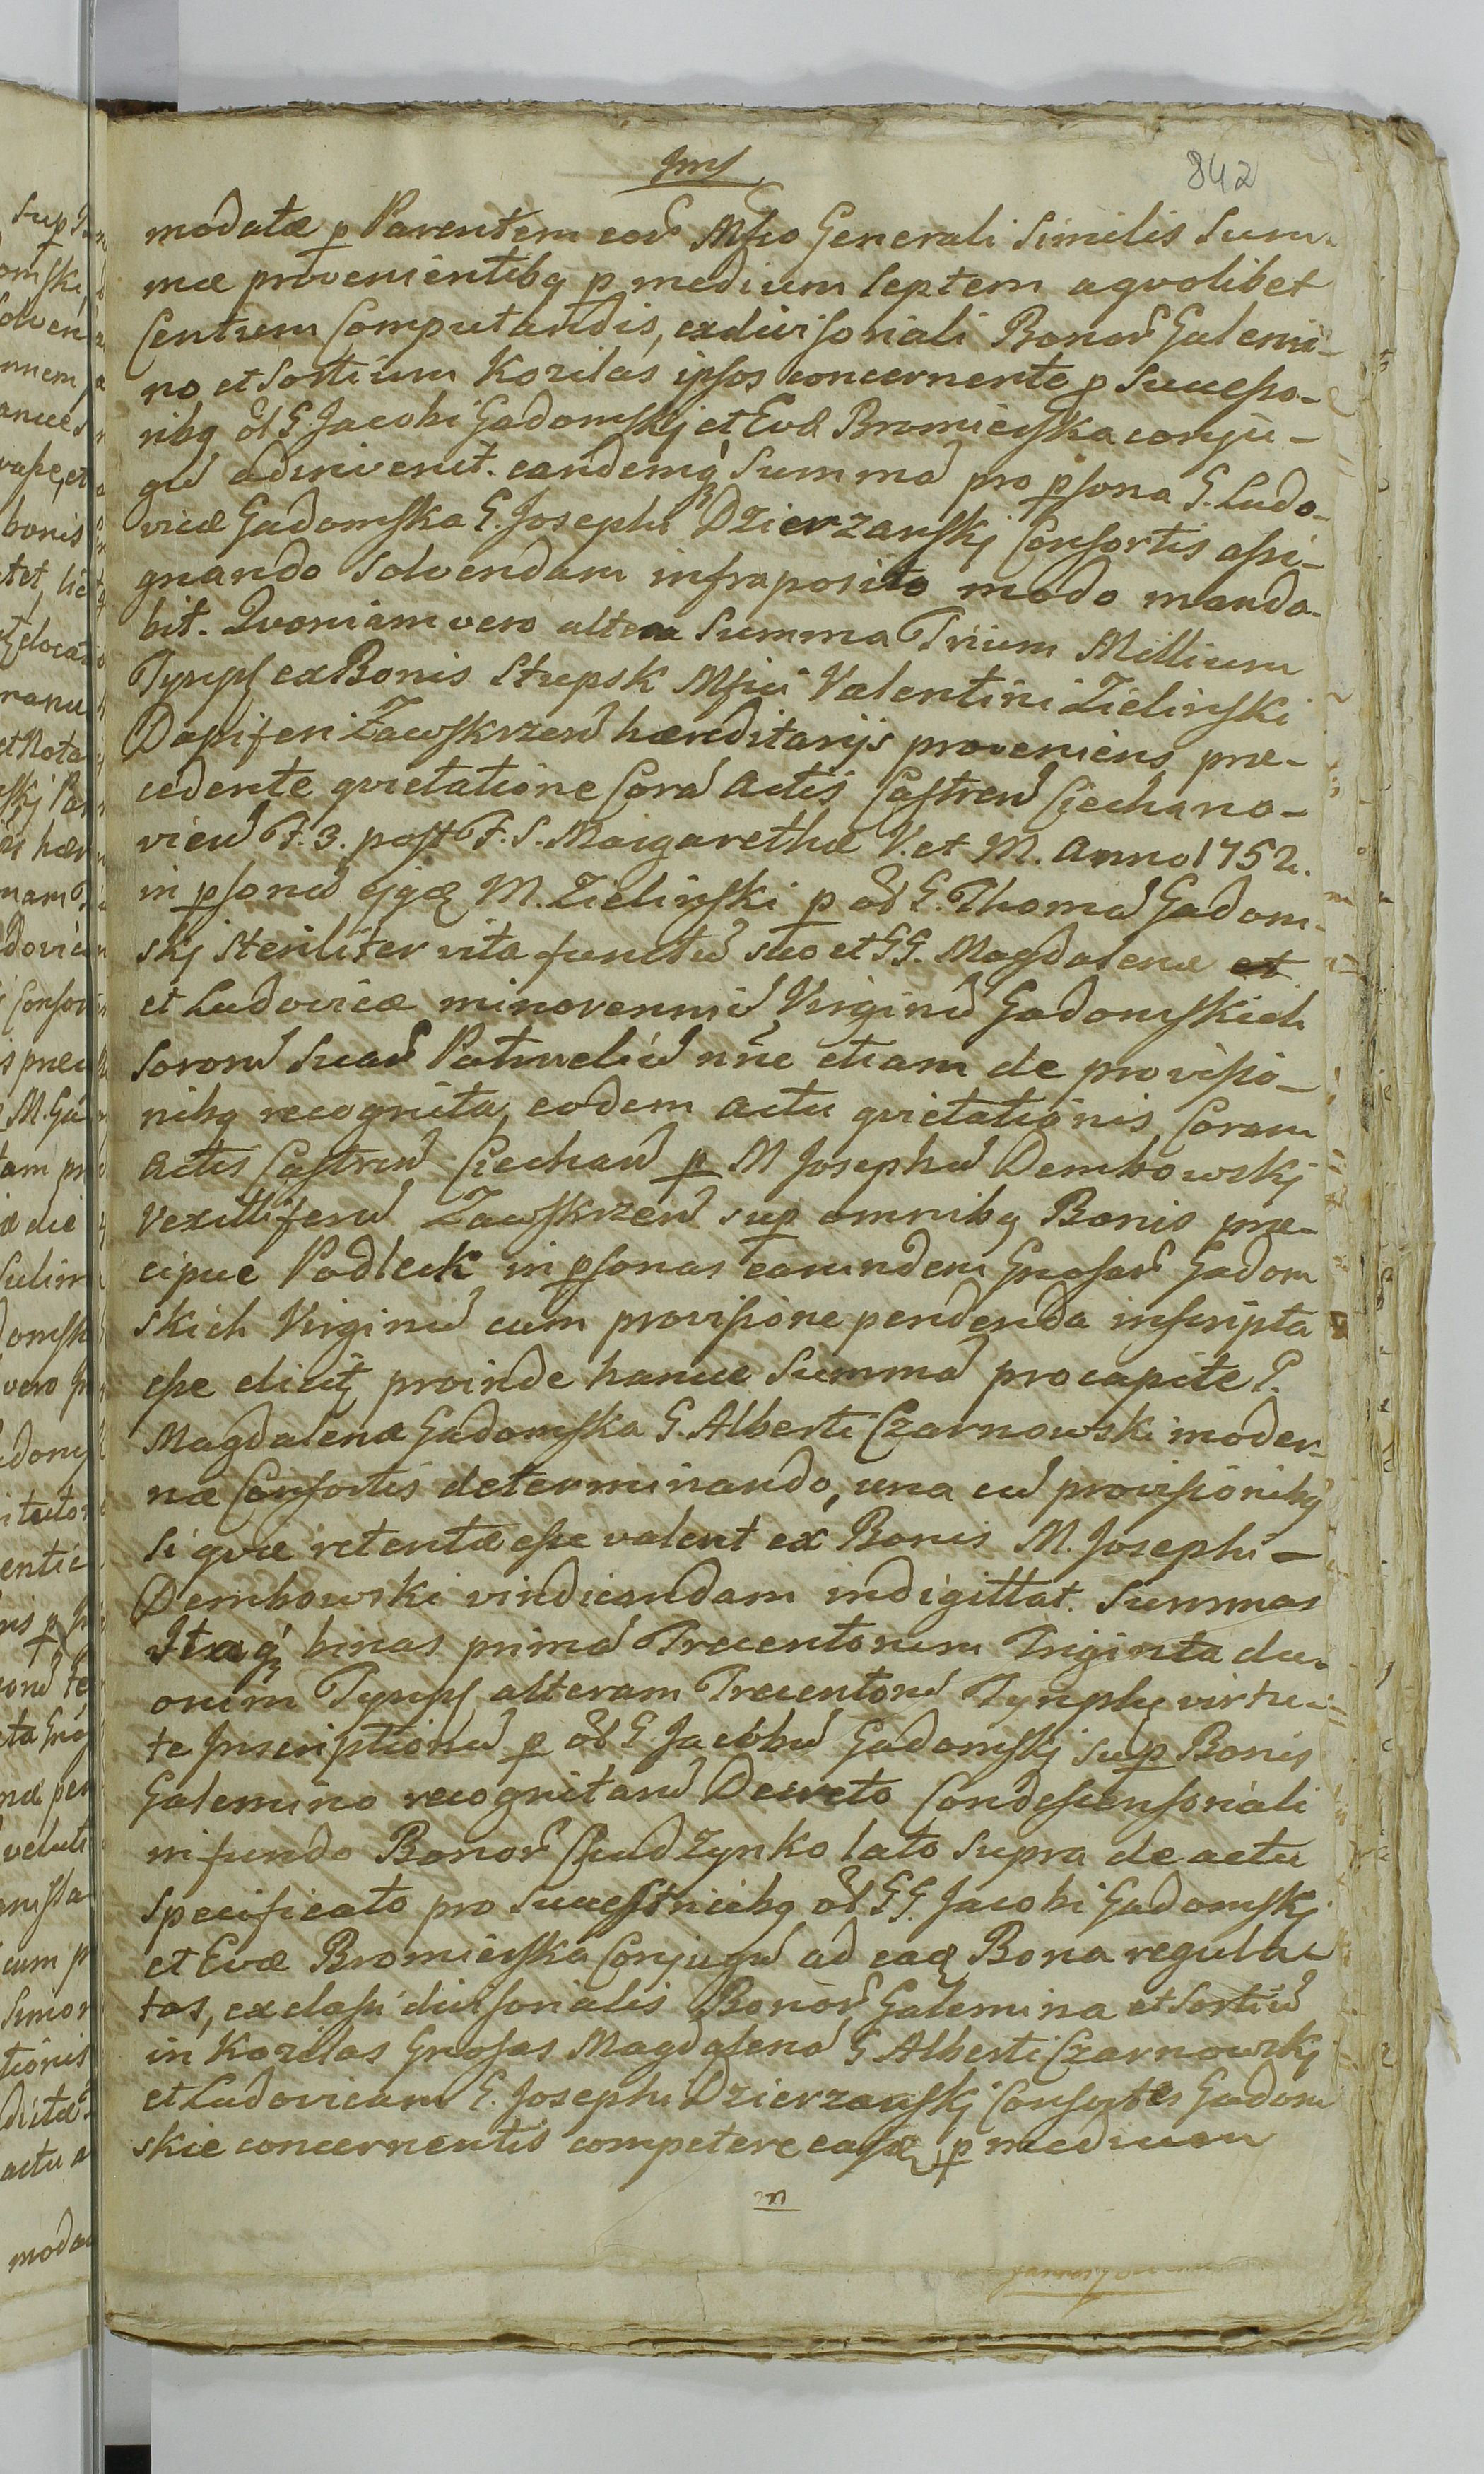 842
modatæ p Parentem eor Mfco Generali Similis Sum¬
mæ provenientibq p medium Septem a qvolibet
Centum Computandis, ex divisoriali Bonor Galemi¬
no et Sortium Kozilas ipsos concernente p Successo¬
ribq od G. Jacobi Gadomskj et Evæ Bromierska conju¬
gu adinvenit. eandemq Summa pro psona G. Ludo¬
vicæ Gadomska G. Josephi Dzierzanskj Consortis assi¬
gnando Solvendam infraposito modo manda¬
bit. Qvoniam vero altera Summa Trium Millium
Tympf ex Bonis Stupsk Mfci Valentini Zielinski
Dapiferi Zawskrzen hæreditarijs proveniens præ¬
cedente qvietatione Cora Actis Castren Ciechano¬
vien F. 3. post F. S. Margarethæ V. et M. Anno 1752.
in psona ejq M. Zielinski p od G. Thoma Gadom¬
skj Steriliter vita functu suo et GG. Magdalenæ et
et Ludovicæ minorenniu Virginu Gadomskich
Sororu Suar Patrueliu nne etiam de provisio¬
nibq recognita, eodem actu qvietationis Coram
Actis Castren Ciechan p M Josephu Dembowskj
Vexilliferu Zawskrzen sup omnibq Bonis præ¬
cipue Podleck in psonas earundem Gnosar Gadom
skich Virginu cum provisione pendenda inscripta
esse dicit proinde hance Summa pro capite G.
Magdalenæ Gadomska G. Alberti Czarnowski moder¬
næ Consortis determinando, una cu provisionibq
Si qvæ retentæ esse valent ex Bonis M. Josephi
Dembowski vindicandam indigittat. Summas
Itaq binas prima Trecentorum Triginta du¬
orum Tympf alteram Trecentoru Tymph virtu¬
te Inscriptionu p od G Jacobu Gadomskj sup Bonis
Galemino recognitaru Decreto Condescensoriali
in fundo Bonor Chudzynko lato Supra de actu
Specificato pro Successricibq od GG. Jacobi Gadomskj
et Evæ Bromierska Conjugu ad ea Bona regula
tas, ex classi divisorialis Bonor Galemina et Sortiu
in Kozilas Gnosas Magdalena G Alberti Czarnowskj
et Ludovicam G. Josephi Dzierzanskj Consortes Gadom
skie concernentis competere easq p medium